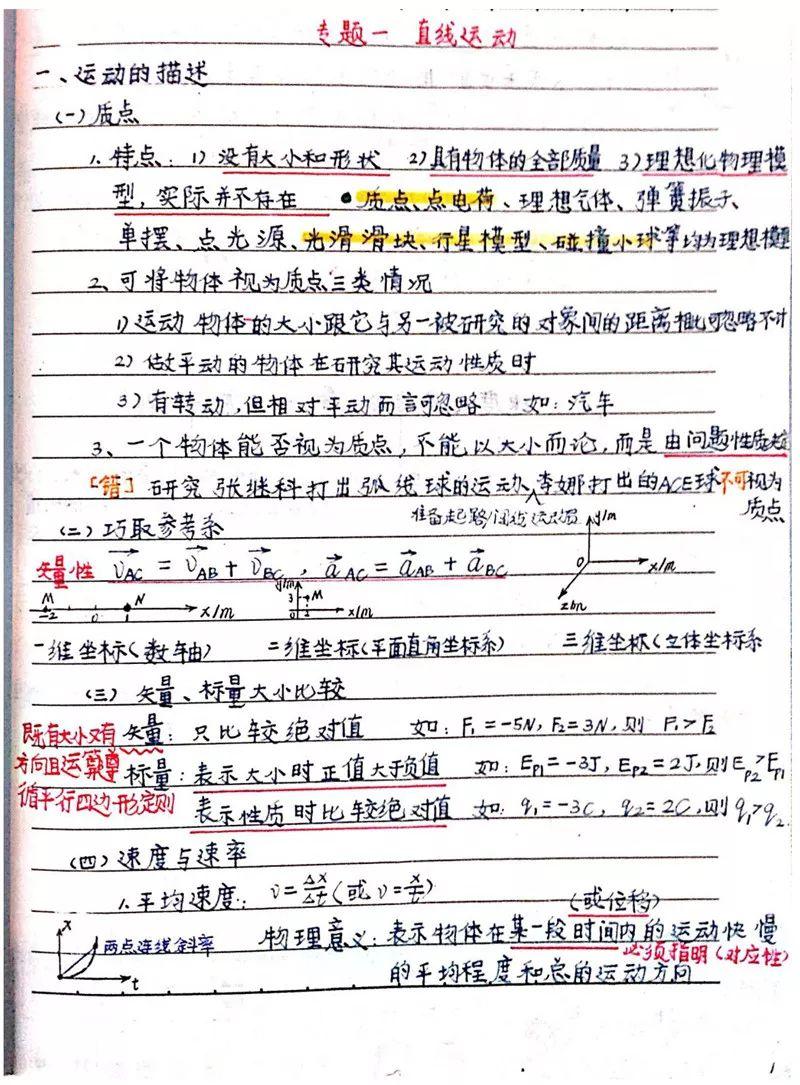 专题一 直线运动
一、运动的描述
(一)质点
1、特点：1) 没有大小和形状 2)具有物体的全部质量 3)理想化物理模
型，实际并不存在 ●质点、点电荷、理想气体、弹簧振子、
单摆、点光源、光滑滑块、行星模型、碰撞小球等均为理想模型
2、可将物体视为质点三类情况
1)运动物体的大小跟它与另一被研究的对象间的距离相比可忽略不计
2) 做平动的物体在研究其运动性质时
3) 有转动，但相对平动而言可忽略 如：汽车
3、一个物体能否视为质点，不能以大小而论，而是由问题性质决定
[错] 研究张继科打出弧线球的运动、李娜打出的ACE球不可视为
质点
准备起跑/闭线运动员
(二)巧取参考系
矢量性 v_AC = v_AB + v_BC ， a_AC = a_AB + a_BC
M -2 0 1 N x/m
y/m 3 M 0 2 x/m
y/m 0 x/m z/m
一维坐标(数轴) 二维坐标(平面直角坐标系) 三维坐标(立体坐标系
(三) 矢量、标量大小比较
既有大小又有
方向且运算遵
循平行四边形定则
矢量：只比较绝对值 如：F₁=-5N，F₂=3N，则 F₁>F₂
标量：表示大小时正值大于负值 如：Ep1=-3J，Ep2=2J，则Ep2>Ep1
表示性质时比较绝对值 如：q₁=-3C，q₂=2C，则q₁>q₂
(四)速度与速率
1、平均速度：v=Δx/Δt(或v=x/t)
x 两点连线斜率 t
(或位移)
物理意义：表示物体在某一段时间内的运动快慢
必须指明(对应性)
的平均程度和总的运动方向
1